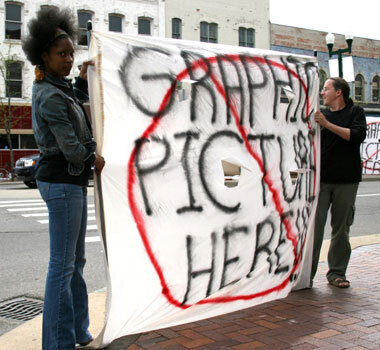 GRAPHIC
PICTURE
HERE!